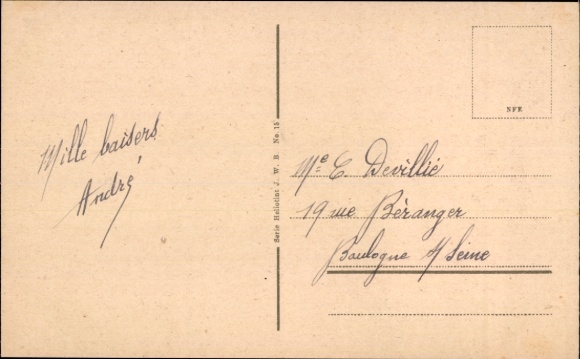 Mille baisers
André
Serie Heliotint J. W. B. No 15
NFE
Me E. Devillié
19 rue Béranger
Boulogne s/ Seine